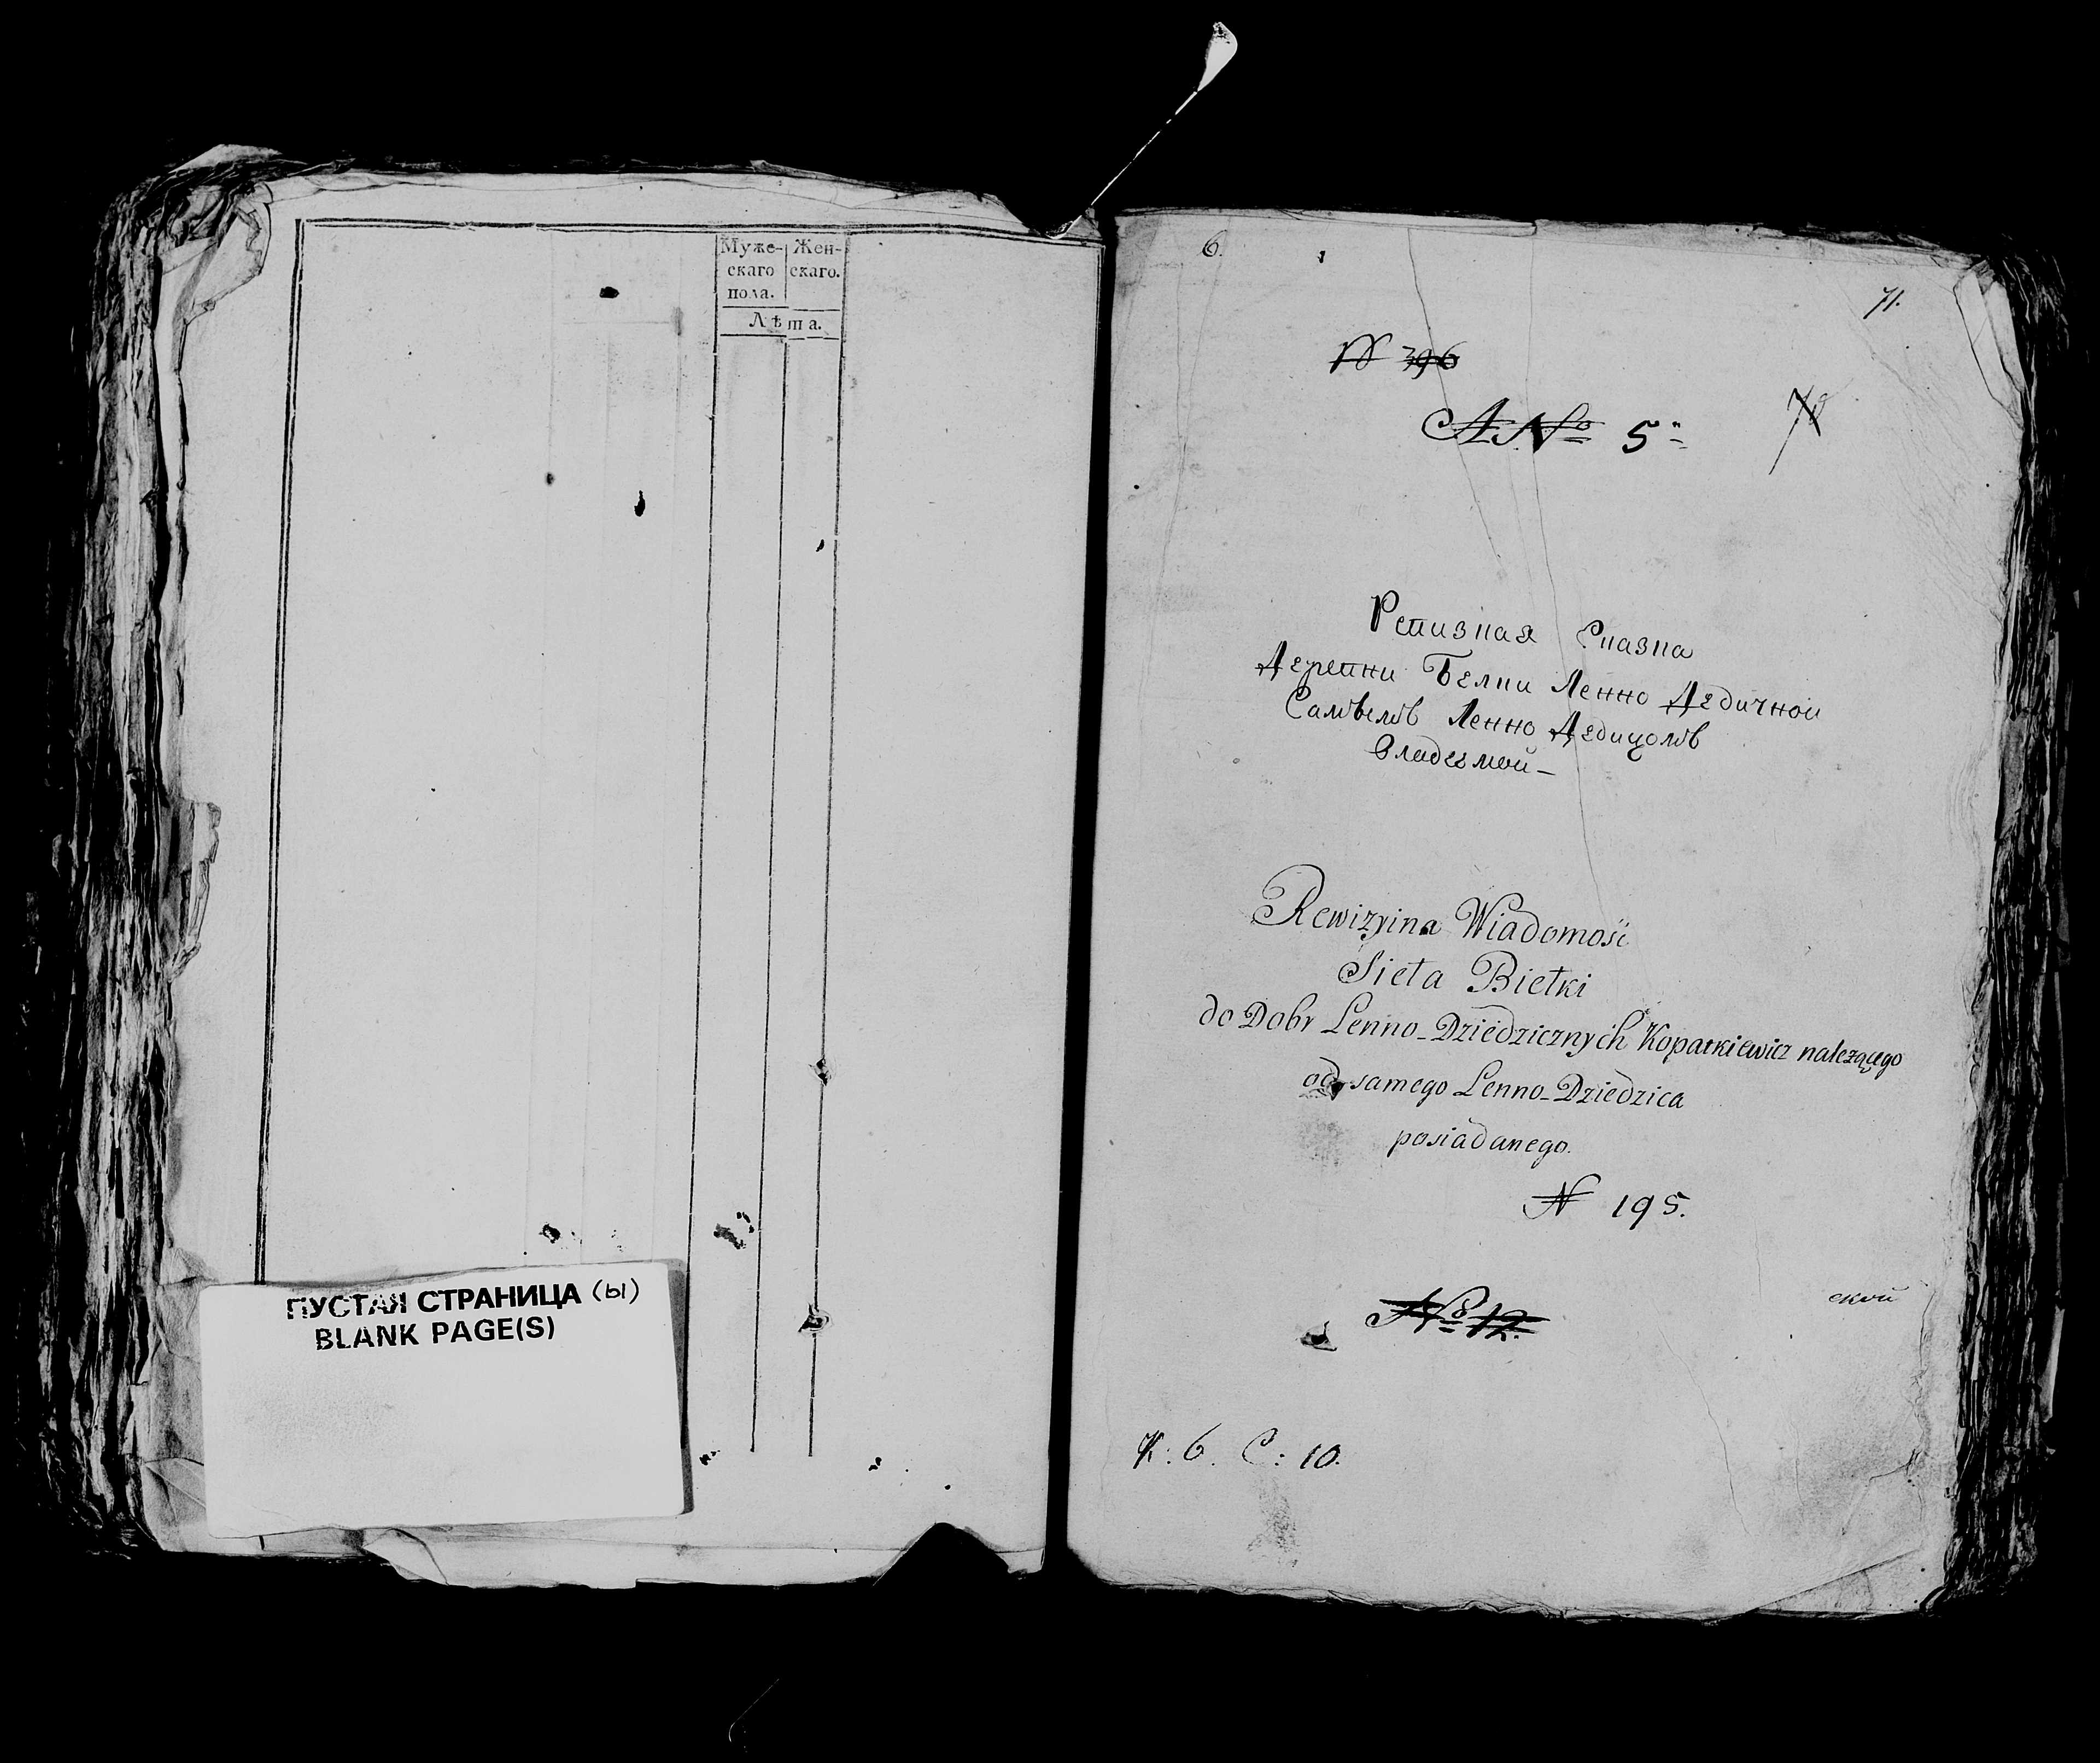 Муже-
скаго
пола.
Жен-
скаго.
Лѣта.
ПУСТАЯ СТРАНИЦА (ы)
BLANK PAGE(S)
6.
71.
N 396
A.No 5
70
Ревизная Сказка
Деревни Белки Ленно Дедичной
Самѣмъ Ленно Дедицомъ
Владеемой
Rewizyina Wiadomość
Sieła Biełki
do Dobr Lenno-Dziedzicznych Kopatkiewicz należącego
od samego Lenno-Dziedzica
posiadanego.
N 195.
No 12.
ской
К: 6. С: 10.